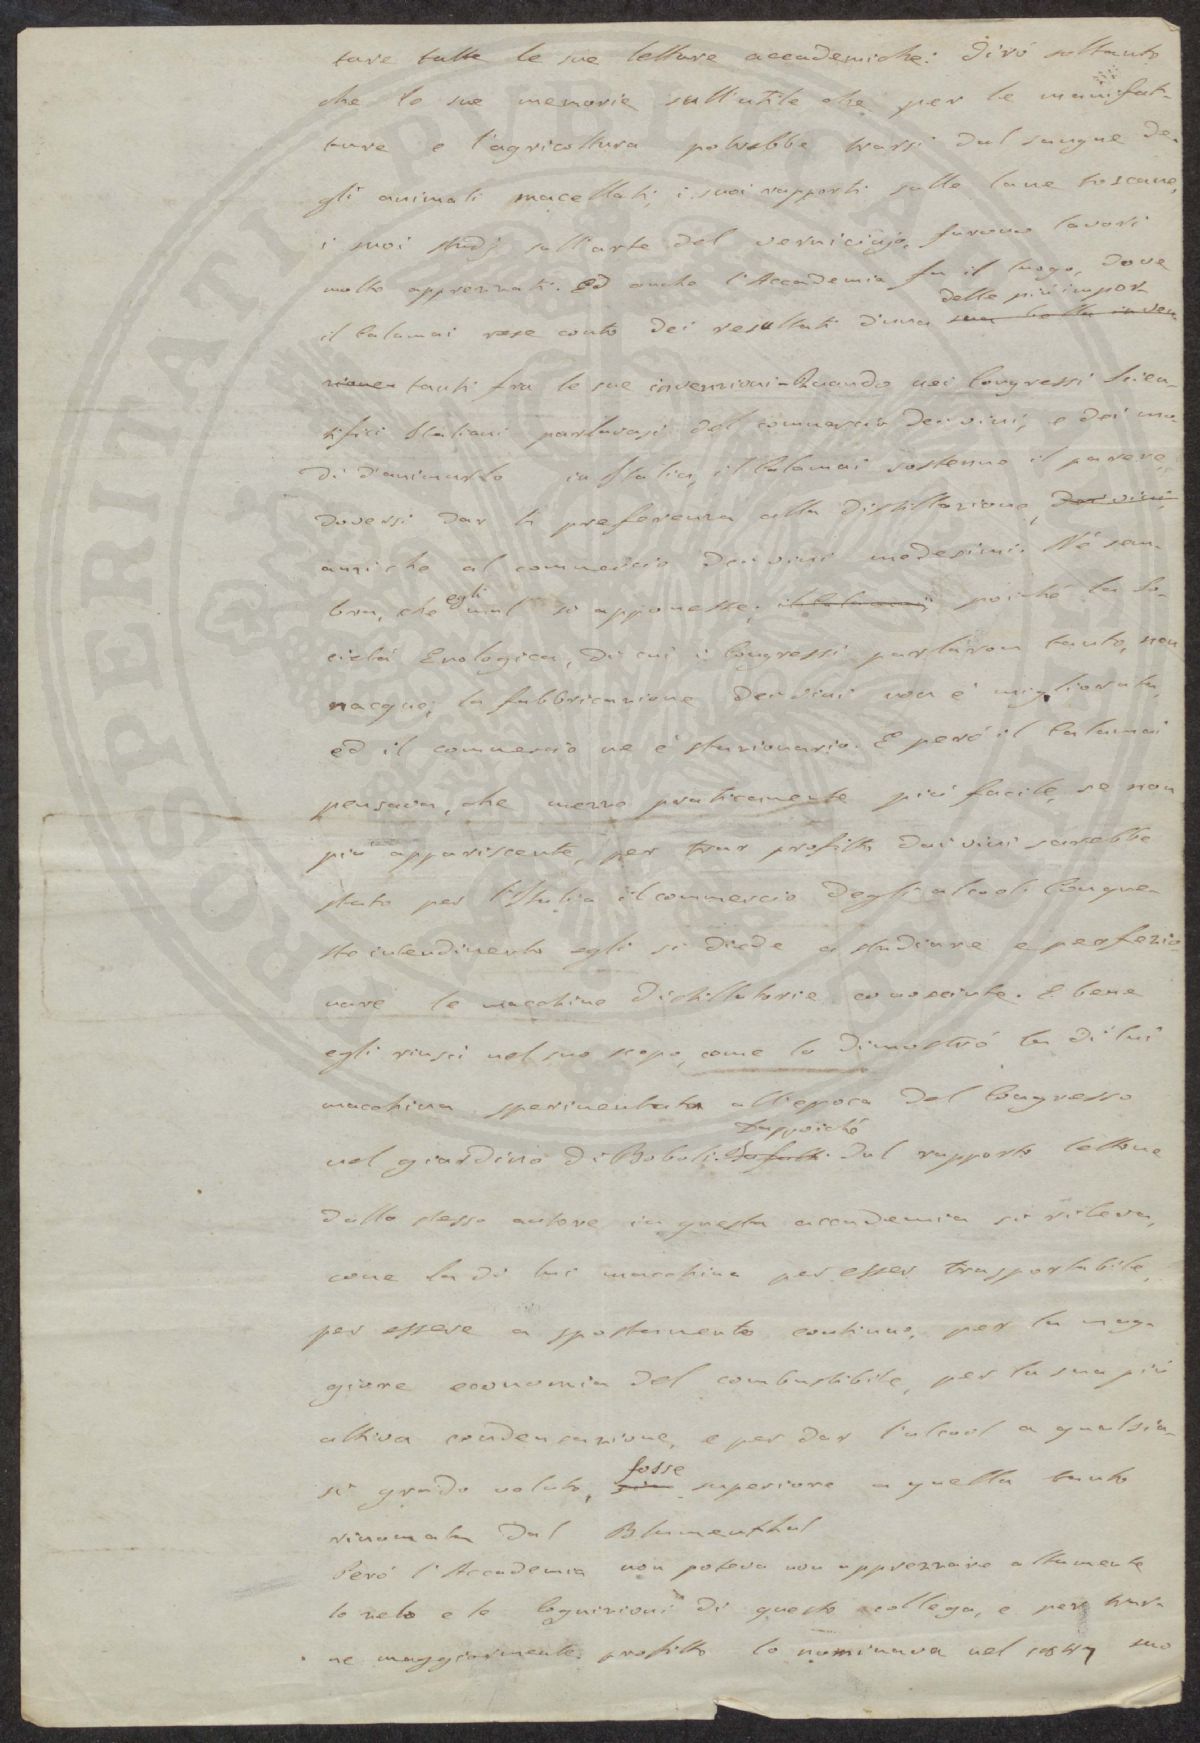 tare tutte le sue letture accademiche: dirò soltanto
che le sue memorie sull'utile che per le manifat-
ture e l'agricoltura potrebbe trarsi dal sangue de-
gli animali macellati, i suoi rapporti sulle lane toscane,
i suoi studj sull'arte del verniciajo, furono lavori
molto apprezzati. Ed anche l'Accademia fu il luogo, dove
delle più impor
il Calamai rese conto dei resultati d'una sua bella inven
zione tanti fra le sue invenzioni - Quando nei Congressi Scien-
tifici Italiani parlavasi del commercio dei vini, e dei mo-
di d'animarlo in Italia, il Calamai sostenne il parere,
doversi dar la preferenza alla distillazione, dei vini,
anziche al commercio dei vini medesimi. Nè sem-
bra, che egli mal si apponesse, il Calamai, poichè la So-
cietà Enologica, di cui i Congressi parlaron tanto, non
nacque; la fabbricazione dei vini non è migliorata,
ed il commercio ne è stazionario. E però il Calamai
pensava, che mezzo praticamente più facile, se non
più appariscente, per trar profitto dai vini sarebbe
stato per l'Italia il commercio degli alcooli. Con que-
sto intendimento egli si diede a studiare e perfezio-
nare le macchine distillatorie conosciute. E bene
egli riuscì nel suo scopo, come lo dimostrò la di lui
macchina sperimentata all'epoca del Congresso
Dappoichè
nel giardino di Boboli. Infatti dal rapporto lettone
dallo stesso autore in questa accademia si rileva,
come la di lui macchina per esser trasportabile,
per essere a spostamento continuo, per la mag-
giore economia del combustibile, per la sua più
attiva condensazione, e per dar l'alcool a qualsia-
si grado voluto, fosse sia superiore a quella tanto
rinomata dal Blumenthal
Però l'Accademia non poteva non apprezzare altamente
lo zelo e le cognizioni di questo collega, e per trar-
ne maggiormente profitto lo nominava nel 1847 suo
PROSPERITATI PUBLICAE